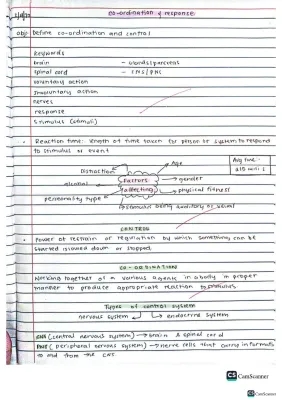 co-ordination & response
obj: Define co-ordination and control
Keywords
brain - glands/pancreas
spinal cord - CNS/PNS
voluntary action
Involuntary action
nerves
response
stimulus (stimuli)
Reaction time: length of time taken for person or system to respond
to stimulus or event
Distraction
Age
Avg time:
alcohol
Factors
affecting
gender
physical fitness
personality type
stimulus being auditory or visual
CONTROL
Power of restrain or regulation by which something can be
started slowed down or stopped.
CO-ORDINATION
Working together of a various agents in a body in proper
manner to produce appropriate reaction to stimulus
Types of control system
nervous system endocrine system
CNS (central nervous system) → brain & spinal cord
PNS (peripheral nervous system) → nerve cells that carry informatn
to and from the CNS.
CS CamScanner
CamScanner